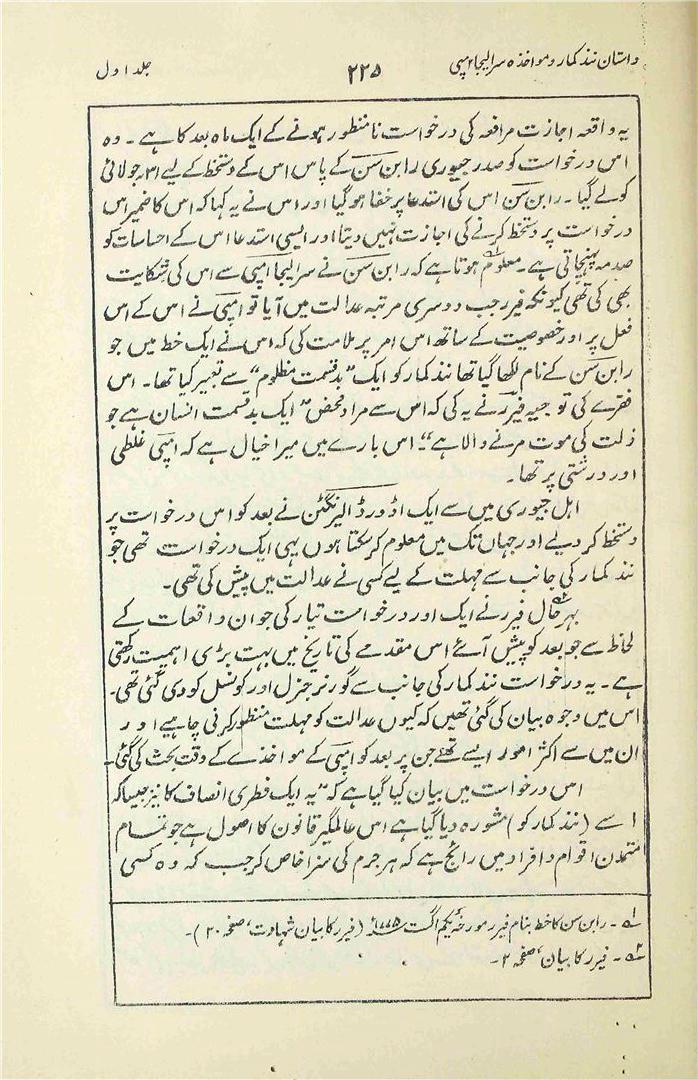 داستان نند کمار و مواخذہ سر الیجا امپی
۲۲۵
جلد اول
یہ واقعہ اجازت مرافعہ کی درخواست نامنظور ہونے کے ایک ماہ بعد کا ہے ۔ وہ
اس درخواست کو صدر جیوری رابن سن کے پاس اس کے دستخط کے لیے ۳۱؍جولائی
کو لے گیا ۔ رابن سن اس کی استدعا پر خفا ہو گیا اور اس نے یہ کہا کہ اس کا ضمیر اس
درخواست پر دستخط کرنے کی اجازت نہیں دیتا اور ایسی استدعا اس کے احساسات کو
صدمہ پہنچاتی ہے ۔ معلوم ہوتا ہے کہ رابن سن نے سر الیجا امپی سے اس کی شکایت
بھی کی تھی کیونکہ فیرر جب دوسری مرتبہ عدالت میں آیا تو امپی نے اس کے اس
فعل پر اور خصوصیت کے ساتھ اس امر پر ملامت کی کہ اس نے ایک خط میں جو
رابن سن کے نام لکھا گیا تھا نند کمار کو ایک ”بدقسمت مظلوم“ سے تعبیر کیا تھا ۔ اس
فقرے کی توجیہ فیرر نے یہ کی کہ اس سے مراد محض ”ایک بدقسمت انسان ہے جو
ذلت کی موت مرنے والا ہے“ ۔ اس بارے میں میرا خیال ہے کہ امپی غلطی
اور درشتی پر تھا ۔
اہل جیوری میں سے ایک اڈورڈ الیرنگٹن نے بعد کو اس درخواست پر
دستخط کر دیے اور جہاں تک میں معلوم کر سکتا ہوں یہی ایک درخواست تھی جو
نند کمار کی جانب سے مہلت کے لیے کسی نے عدالت میں پیش کی تھی ۔
بہرحال فیرر نے ایک اور درخواست تیار کی جو ان واقعات کے
لحاظ سے جو بعد کو پیش آئے اس مقدمے کی تاریخ میں بہت بڑی اہمیت رکھتی
ہے ۔ یہ درخواست نند کمار کی جانب سے گورنر جنرل اور کونسل کو دی گئی تھی ۔
اس میں وجوہ بیان کی گئی تھیں کہ کیوں عدالت کو مہلت منظور کرنی چاہیے اور
ان میں سے اکثر امور ایسے تھے جن پر بعد کو امپی کے مواخذے کے وقت بحث کی گئی ۔
اس درخواست میں بیان کیا گیا ہے کہ ”یہ ایک فطری انصاف کا نیز جیسا کہ
اسے (نند کمار کو) مشورہ دیا گیا ہے اس عالمگیر قانون کا اصول ہے جو تمام
متمدن اقوام و افراد میں رائج ہے کہ ہر جرم کی سزا خاص کر جب کہ وہ کسی
۱؎ ۔ رابن سن کا خط بنام فیرر مورخہ یکم اگست ۱۷۷۵ء (فیرر کا بیان شہادت، صفحہ ۲۰) ۔
۲؎ ۔ فیرر کا بیان، صفحہ ۲ ۔